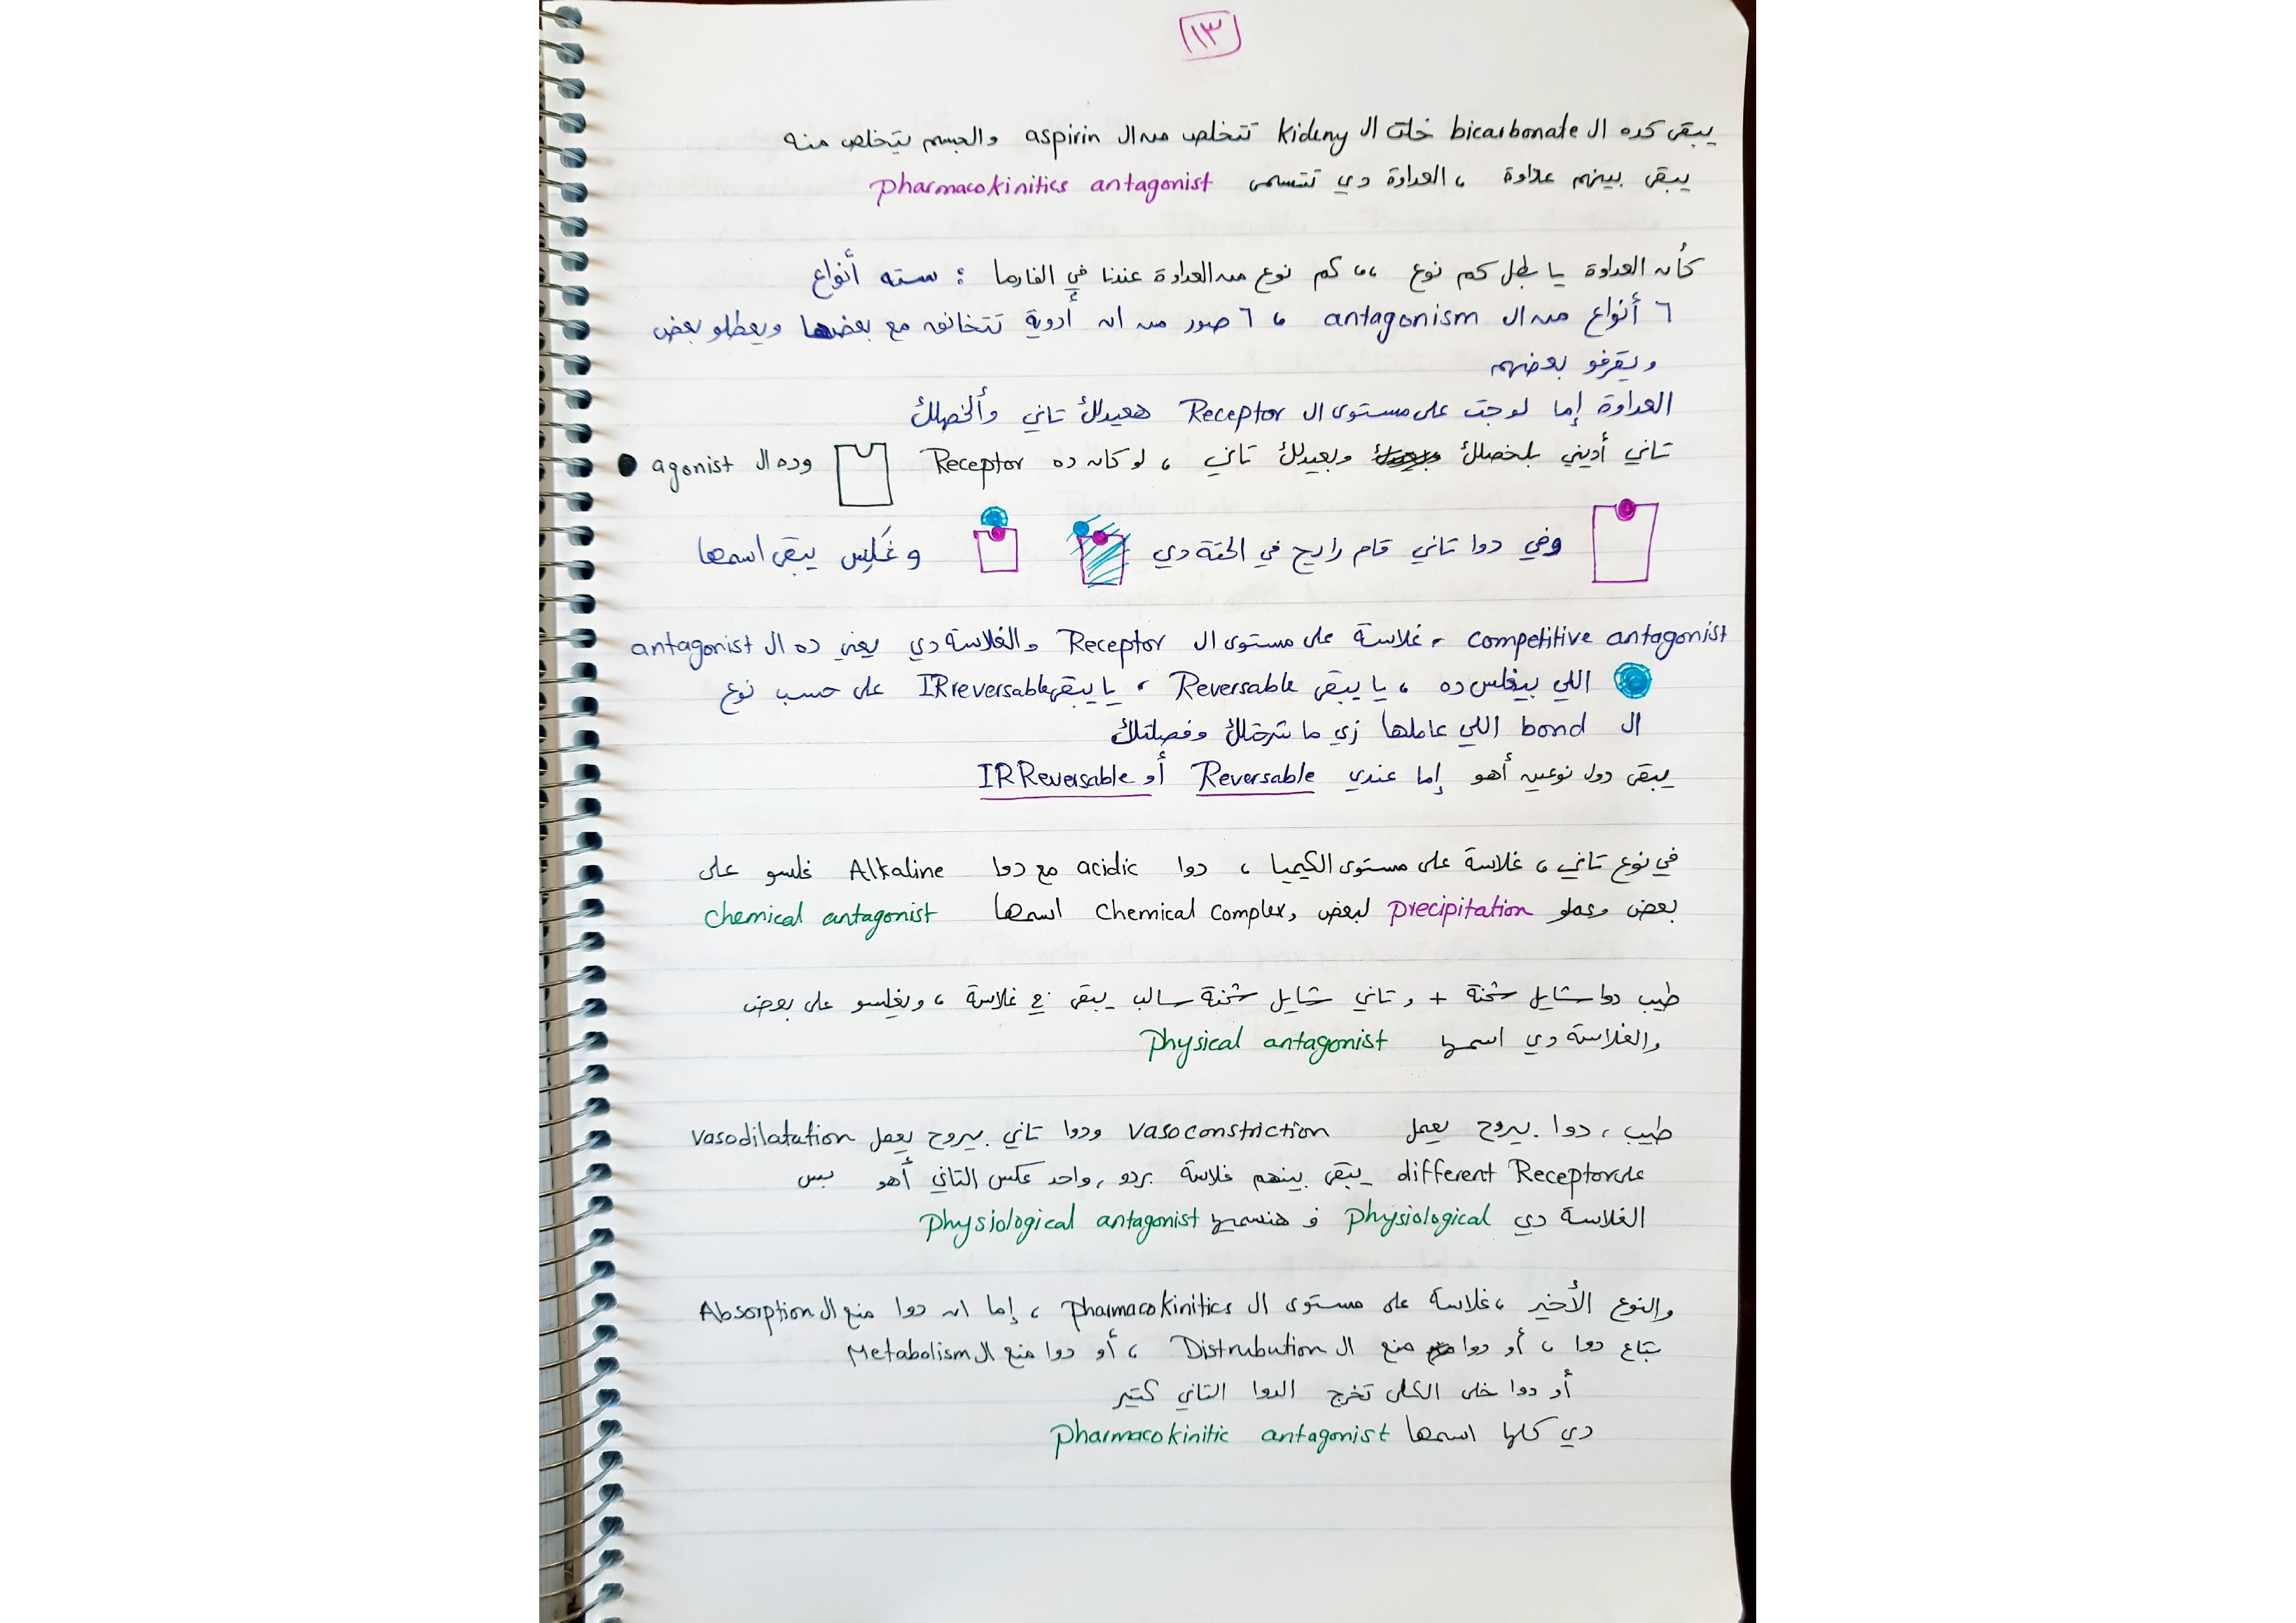 ١٣
يبقى كده ال bicarbonate خلت ال Kideny تتخلص من ال aspirin والجسم يتخلص منه
يبقى بينهم عداوة ، العداوة دي تتسمى pharmacokinitics antagonist
كأن العداوة يا بطل كم نوع ،، كم نوع من العداوة عندنا في الفارما : سته أنواع
٦ أنواع من ال antagonism ، ٦ صور من ان أدوية تتخانق مع بعضها ويعطلو بعض
ويقرفو بعضهم
العداوة إما لو جت على مستوى ال Receptor هعيدلك تاني وألخصلك
تاني أديني بلخصلك وبعيدلك تاني ، لو كان ده Receptor وده ال agonist
وفي دوا تاني قام رايح في الحتة دي وغَلِس يبقى اسمها
competitive antagonist ، غلاسة على مستوى ال Receptor والغلاسة دي يعني ده ال antagonist
اللي بيغلس ده ، يا يبقى Reversable ، يا يبقى IRreversable على حسب نوع
ال bond اللي عاملها زي ما شرحتلك وفصلتلك
يبقى دول نوعين أهو إما عندي Reversable أو IRReversable
في نوع تاني ، غلاسة على مستوى الكيميا ، دوا acidic مع دوا Alkaline غلسو على
بعض وعملو precipitation لبعض و chemical complex اسمها chemical antagonist
طيب دوا شايل شحنة + وتاني شايل شحنة سالب يبقى في غلاسة ، ويغلسو على بعض
والغلاسة دي اسمها physical antagonist
طيب ، دوا بيروح يعمل vasoconstriction ودوا تاني بيروح يعمل vasodilatation
على different Receptor يبقى بينهم غلاسة بردو ، واحد عكس التاني أهو بس
الغلاسة دي physiological ف هنسميها physiological antagonist
والنوع الأخير ، غلاسة على مستوى ال pharmacokinitics ، إما ان دوا منع ال Absorption
بتاع دوا ، أو دوا منع ال Distrubution ، أو دوا منع ال Metabolism
أو دوا خلى الكلى تخرج الدوا التاني كتير
دي كلها اسمها pharmacokinitic antagonist